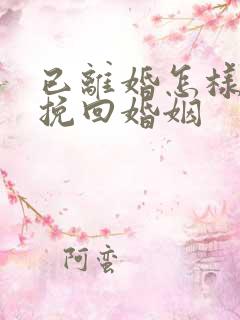 已離婚怎樣
挽回婚姻
阿蛮